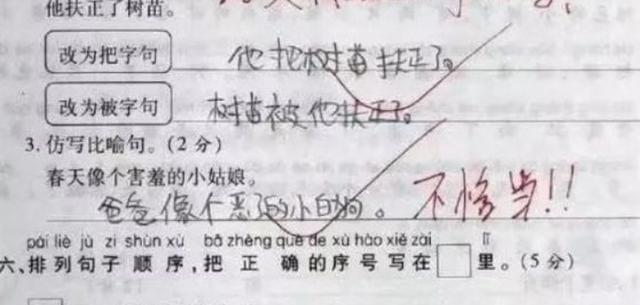 他扶正了树苗。
改为把字句 他把树苗扶正了。
改为被字句 树苗被他扶正了。
3.仿写比喻句。(2分)
春天像个害羞的小姑娘。
爸爸像个恶了的小白狗。 不恰当!!
pái liè jù zi shùn xù bǎ zhèng què de xù hào xiě zài lǐ
六、排列句子顺序,把正确的序号写在□里。(5分)